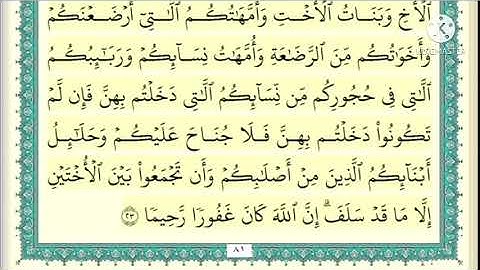 ٱلۡأَخِ وَبَنَاتُ ٱلۡأُخۡتِ وَأُمَّهَٰتُكُمُ ٱلَّٰتِيٓ أَرۡضَعۡنَكُمۡ
وَأَخَوَٰتُكُم مِّنَ ٱلرَّضَٰعَةِ وَأُمَّهَٰتُ نِسَآئِكُمۡ وَرَبَٰٓئِبُكُمُ
ٱلَّٰتِي فِي حُجُورِكُم مِّن نِّسَآئِكُمُ ٱلَّٰتِي دَخَلۡتُم بِهِنَّ فَإِن لَّمۡ
تَكُونُواْ دَخَلۡتُم بِهِنَّ فَلَا جُنَاحَ عَلَيۡكُمۡ وَحَلَٰٓئِلُ
أَبۡنَآئِكُمُ ٱلَّذِينَ مِنۡ أَصۡلَٰبِكُمۡ وَأَن تَجۡمَعُواْ بَيۡنَ ٱلۡأُخۡتَيۡنِ
إِلَّا مَا قَدۡ سَلَفَۗ إِنَّ ٱللَّهَ كَانَ غَفُورٗا رَّحِيمٗا ٢٣
٨١